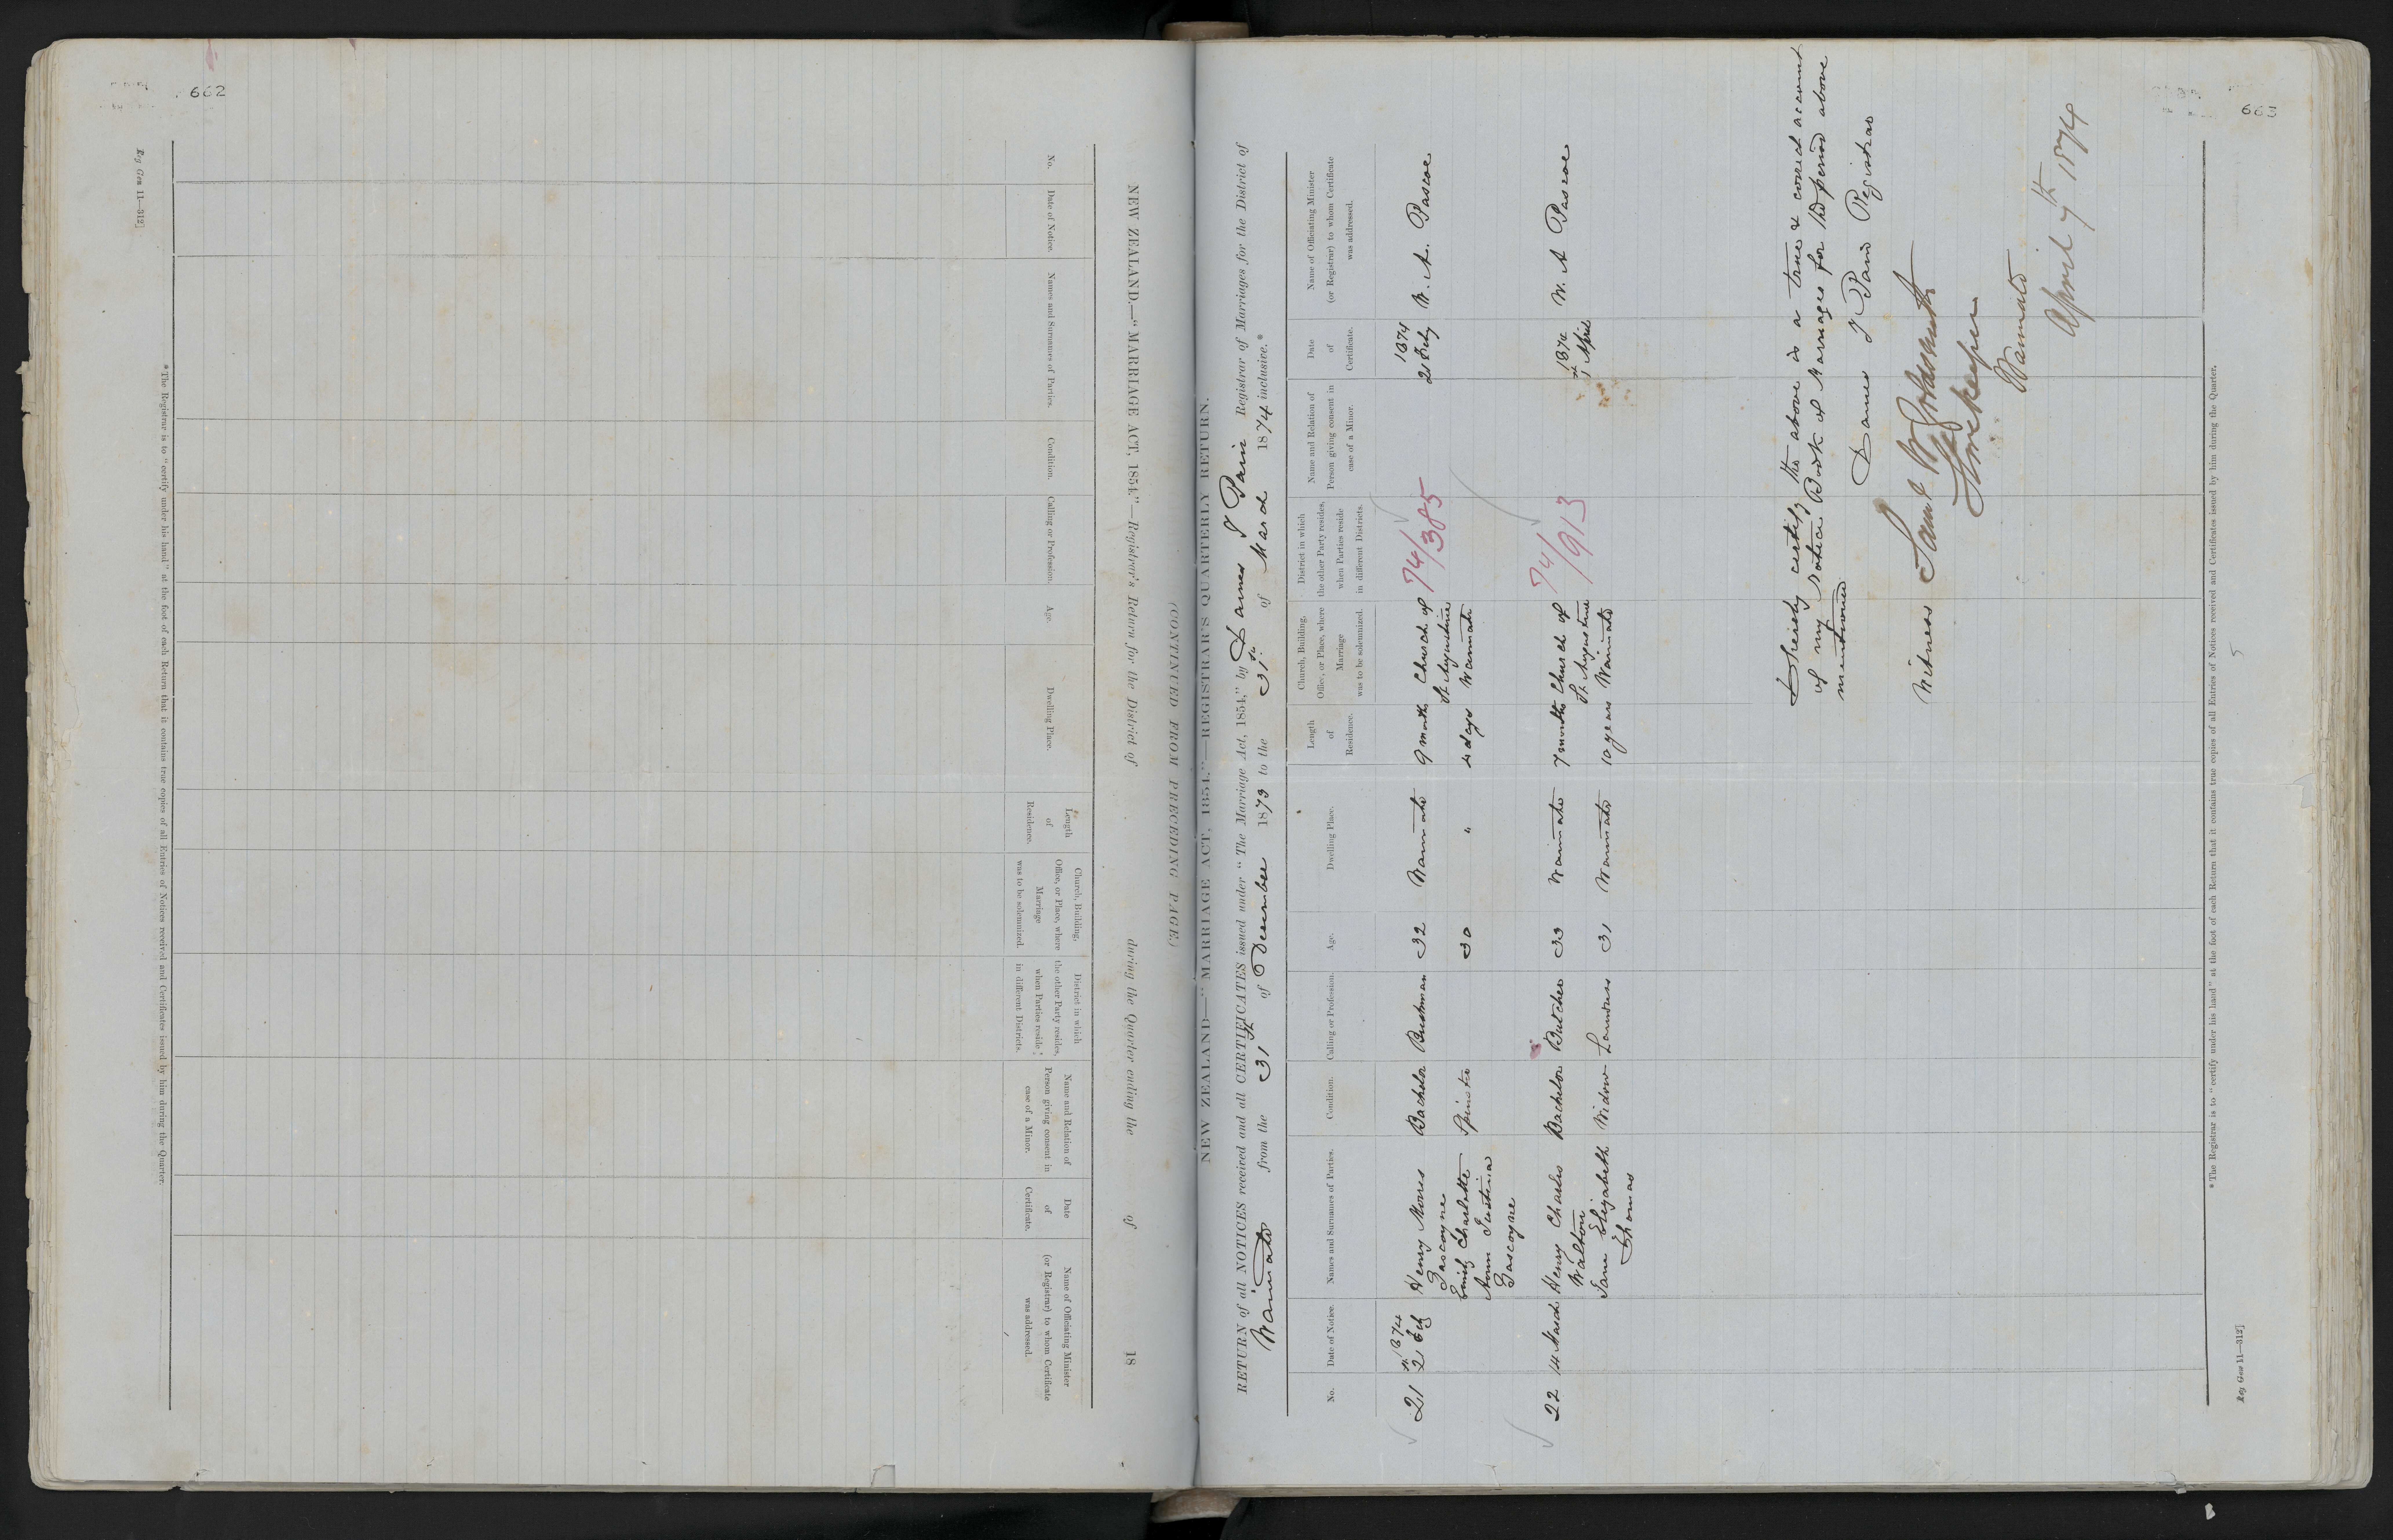 662
NEW ZEALAND.—"MARRIAGE ACT, 1854."—Registrar's Return for the District of during the Quarter ending the of 18
(CONTINUED FROM PRECEDING PAGE.)
No. Date of Notice. Names and Surnames of Parties. Condition. Calling or Profession. Age. Dwelling Place. Length of Residence. Church, Building, Office, or Place, where Marriage was to be solemnized. District in which the other Party resides, when Parties reside in different Districts. Name and Relation of Person giving consent in case of a Minor. Date of Certificate. Name of Officiating Minister (or Registrar) to whom Certificate was addressed.
* The Registrar is to "certify under his hand" at the foot of each Return that it contains true copies of all Entries of Notices received and Certificates issued by him during the Quarter.
Reg Gen 11—312]
NEW ZEALAND—"MARRIAGE ACT, 1854."—REGISTRAR'S QUARTERLY RETURN.
RETURN of all NOTICES received and all CERTIFICATES issued under "The Marriage Act, 1854," by James I Pain Registrar of Marriages for the District of
Waimate from the 31st of December 1873 to the 31st of March 1874 inclusive.*
No. Date of Notice. Names and Surnames of Parties. Condition. Calling or Profession. Age. Dwelling Place. Length of Residence. Church, Building, Office, or Place, where Marriage was to be solemnized. District in which the other Party resides, when Parties reside in different Districts. Name and Relation of Person giving consent in case of a Minor. Date of Certificate. Name of Officiating Minister (or Registrar) to whom Certificate was addressed.
1874 1874
21 21 Feb Henry Mores Bachelor Bushman 32 Waimate 9 months Church of 74/385 21 Feby W. A. Pascoe
Gascoyne St Augustine
Emily Charlotte Spinster 30 " 4 days Waimate
Ann Justina
Gascoyne
1874
22 14 March Henry Charles Bachelor Butcher 33 Waimate 7 months Church of 74/913 1st April W. A Pascoe
Walton St Augustine
Jane Elizabeth Widow Laundress 31 Waimate 10 years Waimate
Thomas
I hereby certify the above is a true & correct account
of my Notice Book of Marriages for the period above
mentioned
James I Pain Registrar
Witness Saml W Goldsmith
Storekeeper
Waimate
April 7th 1874
* The Registrar is to "certify under his hand" at the foot of each Return that it contains true copies of all Entries of Notices received and Certificates issued by him during the Quarter.
Reg Gen 11—312]